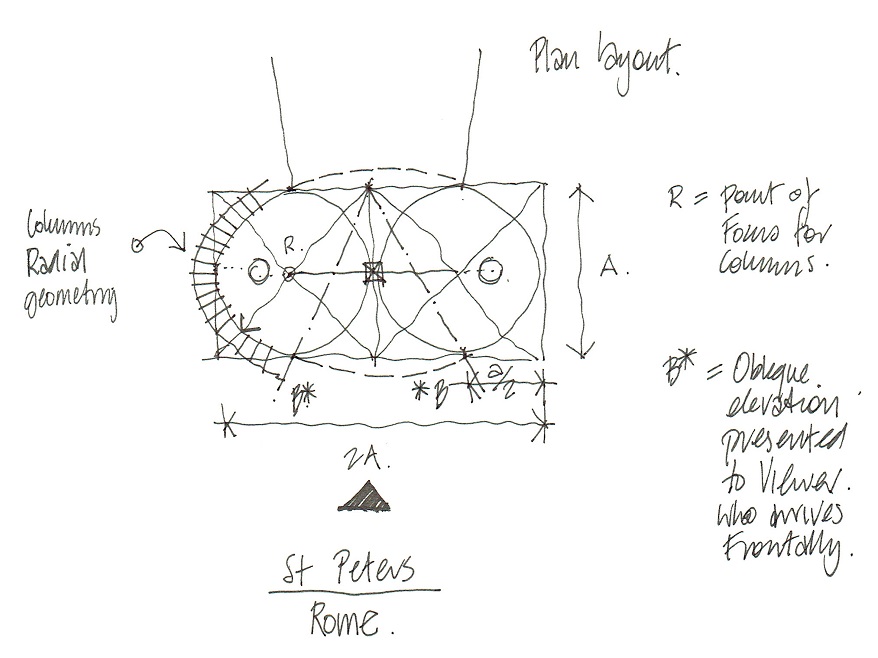 Plan layout.
Columns
Radial
geometry
R.
R = Point of
Focus for
columns.
A.
B*
*B
a/2
2A.
B* = Oblique
elevation
presented
to Viewer.
who arrives
Frontally.
St Peters
Rome.